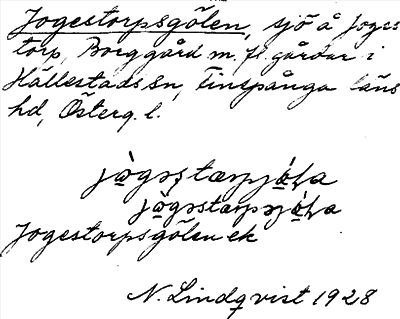 Jogestorpsgölen, sjö å Joges
torp, Borggård m. fl. gårdar i
Hällestads sn, Finspånga läns
hd, Österg. l.
Jogestorpsgölen ek
N. Lindqvist 1928